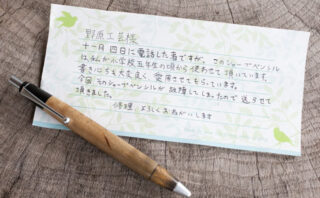 野原工芸様
十一月四日に電話した者ですが、このシャープペンシル
は私が小学校五年生の頃から使わせて頂いています。
書き心ちも大変良く、愛用させてもらっています。
今回そのシャープペンシルが故障してしまったので送らせて
頂きました。
修理よろしくおねがいします